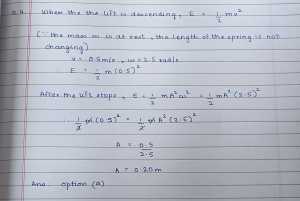 When the the lift is descending, E = 1/2 mv²
(∵ the mass m is at rest, the length of the spring is not
changing)
v = 0.5 m/s, ω = 2.5 rad/s
∴ E = 1/2 m (0.5)²
After the lift stops, E = 1/2 mA²ω² = 1/2 mA² (2.5)²
∴ 1/2 m (0.5)² = 1/2 mA² (2.5)²
A = 0.5/2.5
A = 0.20 m
Ans. option (a)